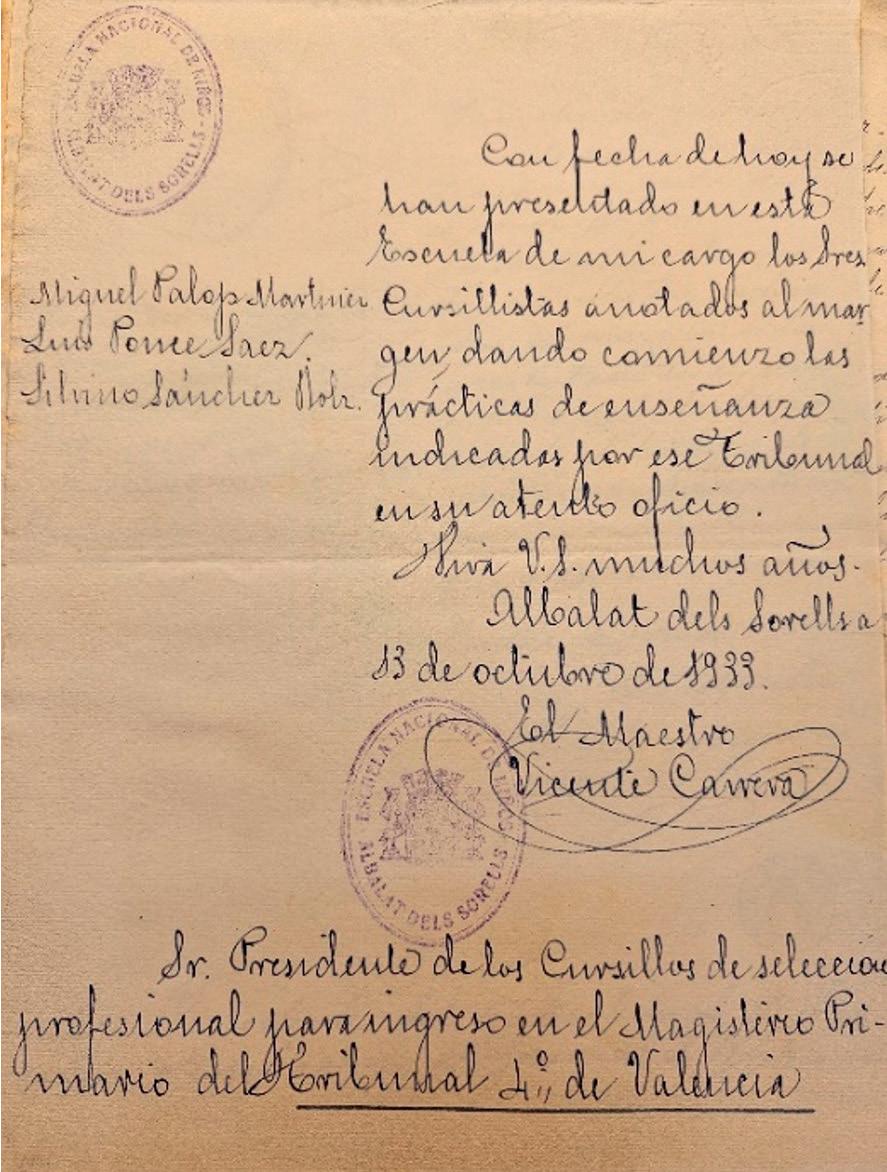 ESCUELA NACIONAL DE NIÑOS
ALBALAT DELS SORELLS
Miguel Palop Martinez
Luis Ponce Saez.
Silvino Sáncher Robr.
Con fecha de hoy se
han presentado en esta
Escuela de mi cargo los Sres
Cursillistas anotados al mar
gen, dando comienzo las
prácticas de enseñanza
indicadas por ese Tribunal
en su atento oficio.
Viva V.S. muchos años.
Albalat dels Sorells a
13 de octubre de 1933.
El Maestro
Vicente Carrera
ESCUELA NACIONAL DE NIÑOS
ALBALAT DELS SORELLS
Sr. Presidente de los Cursillos de selección
profesional para ingreso en el Magisterio Pri-
mario del Tribunal 4º de Valencia